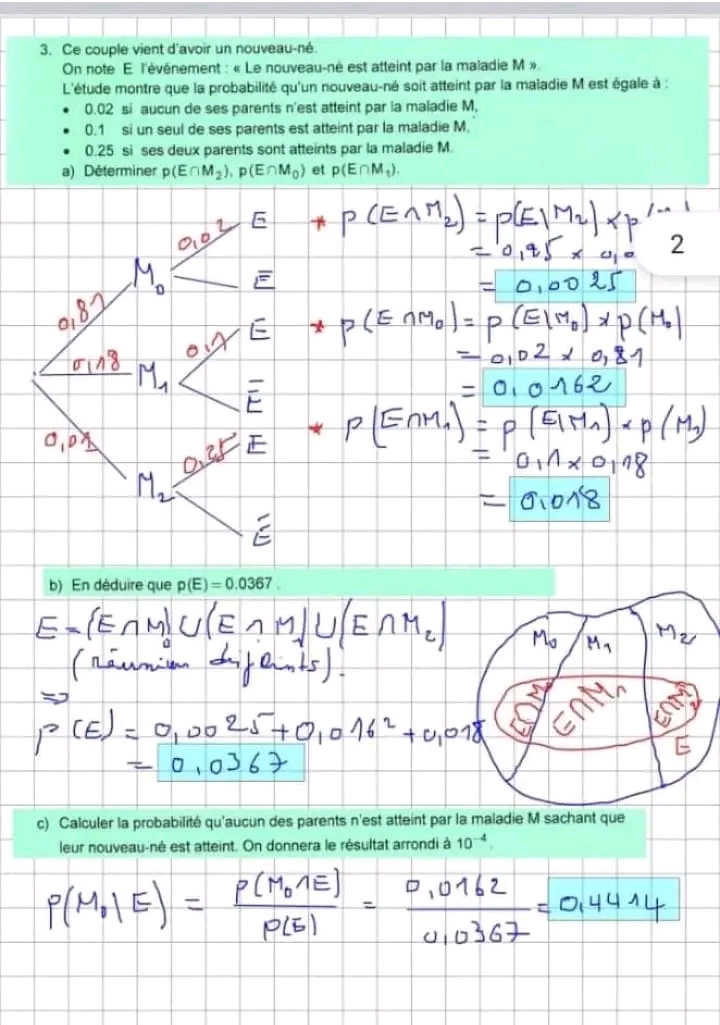 3. Ce couple vient d'avoir un nouveau-né.
On note E l'événement : « Le nouveau-né est atteint par la maladie M ».
L'étude montre que la probabilité qu'un nouveau-né soit atteint par la maladie M est égale à :
• 0.02 si aucun de ses parents n'est atteint par la maladie M,
• 0.1 si un seul de ses parents est atteint par la maladie M,
• 0.25 si ses deux parents sont atteints par la maladie M.
a) Déterminer p(E∩M₂), p(E∩M₀) et p(E∩M₁).
0,81 M₀ 0,02 E
E̅
0,18 M₁ 0,1 E
E̅
0,01 M₂ 0,25 E
E̅
* p(E∩M₂) = p(E\M₂) × p
2
= 0,25 × 0,0
= 0,0025
* p(E∩M₀) = p(E\M₀) × p(M₀)
= 0,02 × 0,81
= 0,0162
* p(E∩M₁) = p(E\M₁) × p(M₁)
= 0,1 × 0,18
= 0,018
b) En déduire que p(E) = 0.0367.
E = (E∩M₀) ∪ (E∩M) ∪ (E∩M₂)
(réunion disjoints).
⇒
p(E) = 0,0025 + 0,0162 + 0,018
= 0,0367
M₀ M₁ M₂
E∩M E∩M₁ E∩M₂
E
c) Calculer la probabilité qu'aucun des parents n'est atteint par la maladie M sachant que
leur nouveau-né est atteint. On donnera le résultat arrondi à 10⁻⁴.
p(M₀\E) = p(M₀∩E) / p(E) = 0,0162 / 0,0367 = 0,4414